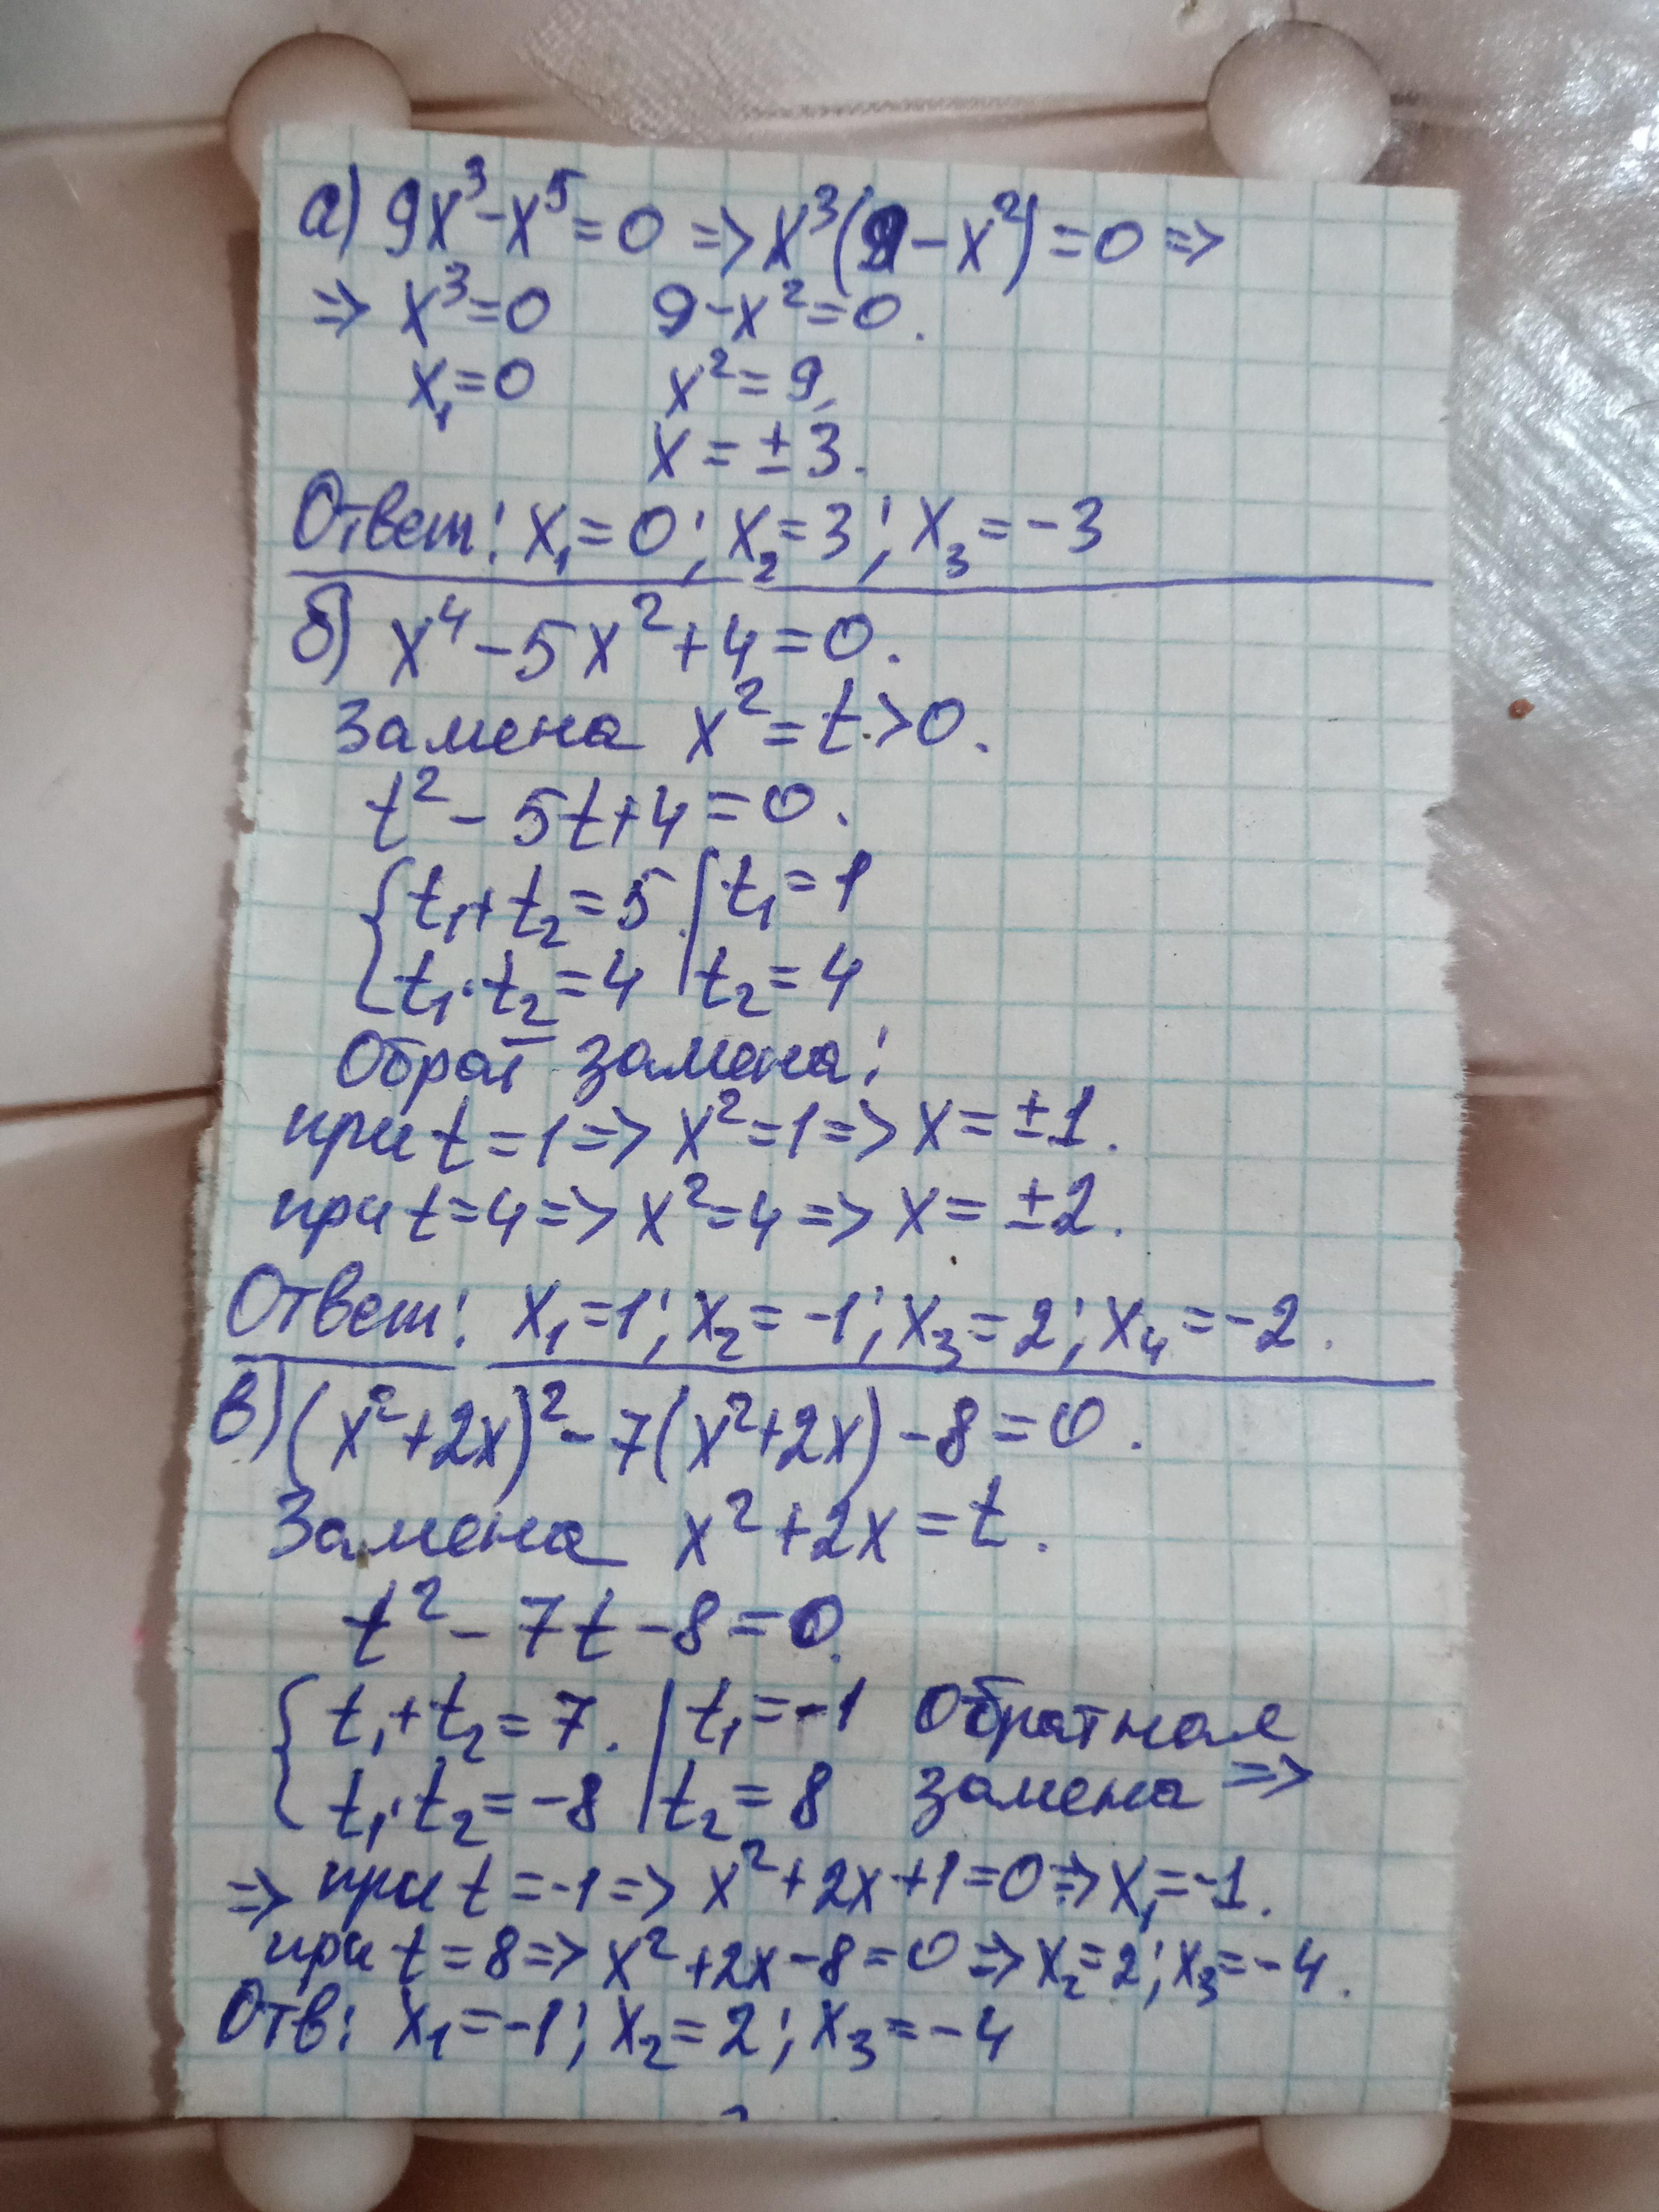 а) 9x³-x⁵=0 => x³(9-x²)=0 =>
=> x³=0 9-x²=0.
x₁=0 x²=9,
x=±3.
Ответ: x₁=0; x₂=3; x₃=-3
б) x⁴-5x²+4=0.
Замена x²=t>0.
t²-5t+4=0.
{t₁+t₂=5. | t₁=1
{t₁·t₂=4 | t₂=4
Обрат замена:
при t=1=> x²=1=> x=±1.
при t=4=> x²=4=> x=±2.
Ответ: x₁=1; x₂=-1; x₃=2; x₄=-2.
в) (x²+2x)²-7(x²+2x)-8=0.
Замена x²+2x=t.
t²-7t-8=0.
{t₁+t₂=7. | t₁=-1 Обратная
{t₁·t₂=-8 | t₂=8 замена =>
=> при t=-1=> x²+2x+1=0=> x₁=-1.
при t=8=> x²+2x-8=0=> x₂=2; x₃=-4.
Отв: x₁=-1; x₂=2; x₃=-4